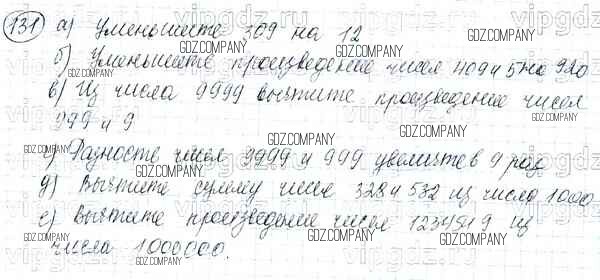 131 а) Уменьшите 309 на 12
б) Уменьшите произведение чисел 409 и 5 на 920
в) Из числа 9999 вычтите произведение чисел
999 и 9
г) Разность чисел 9999 и 999 увеличьте в 9 раз
д) Вычтите сумму чисел 328 и 532 из числа 1000
е) Вычтите произведение чисел 1234 и 9 из
числа 1000000.